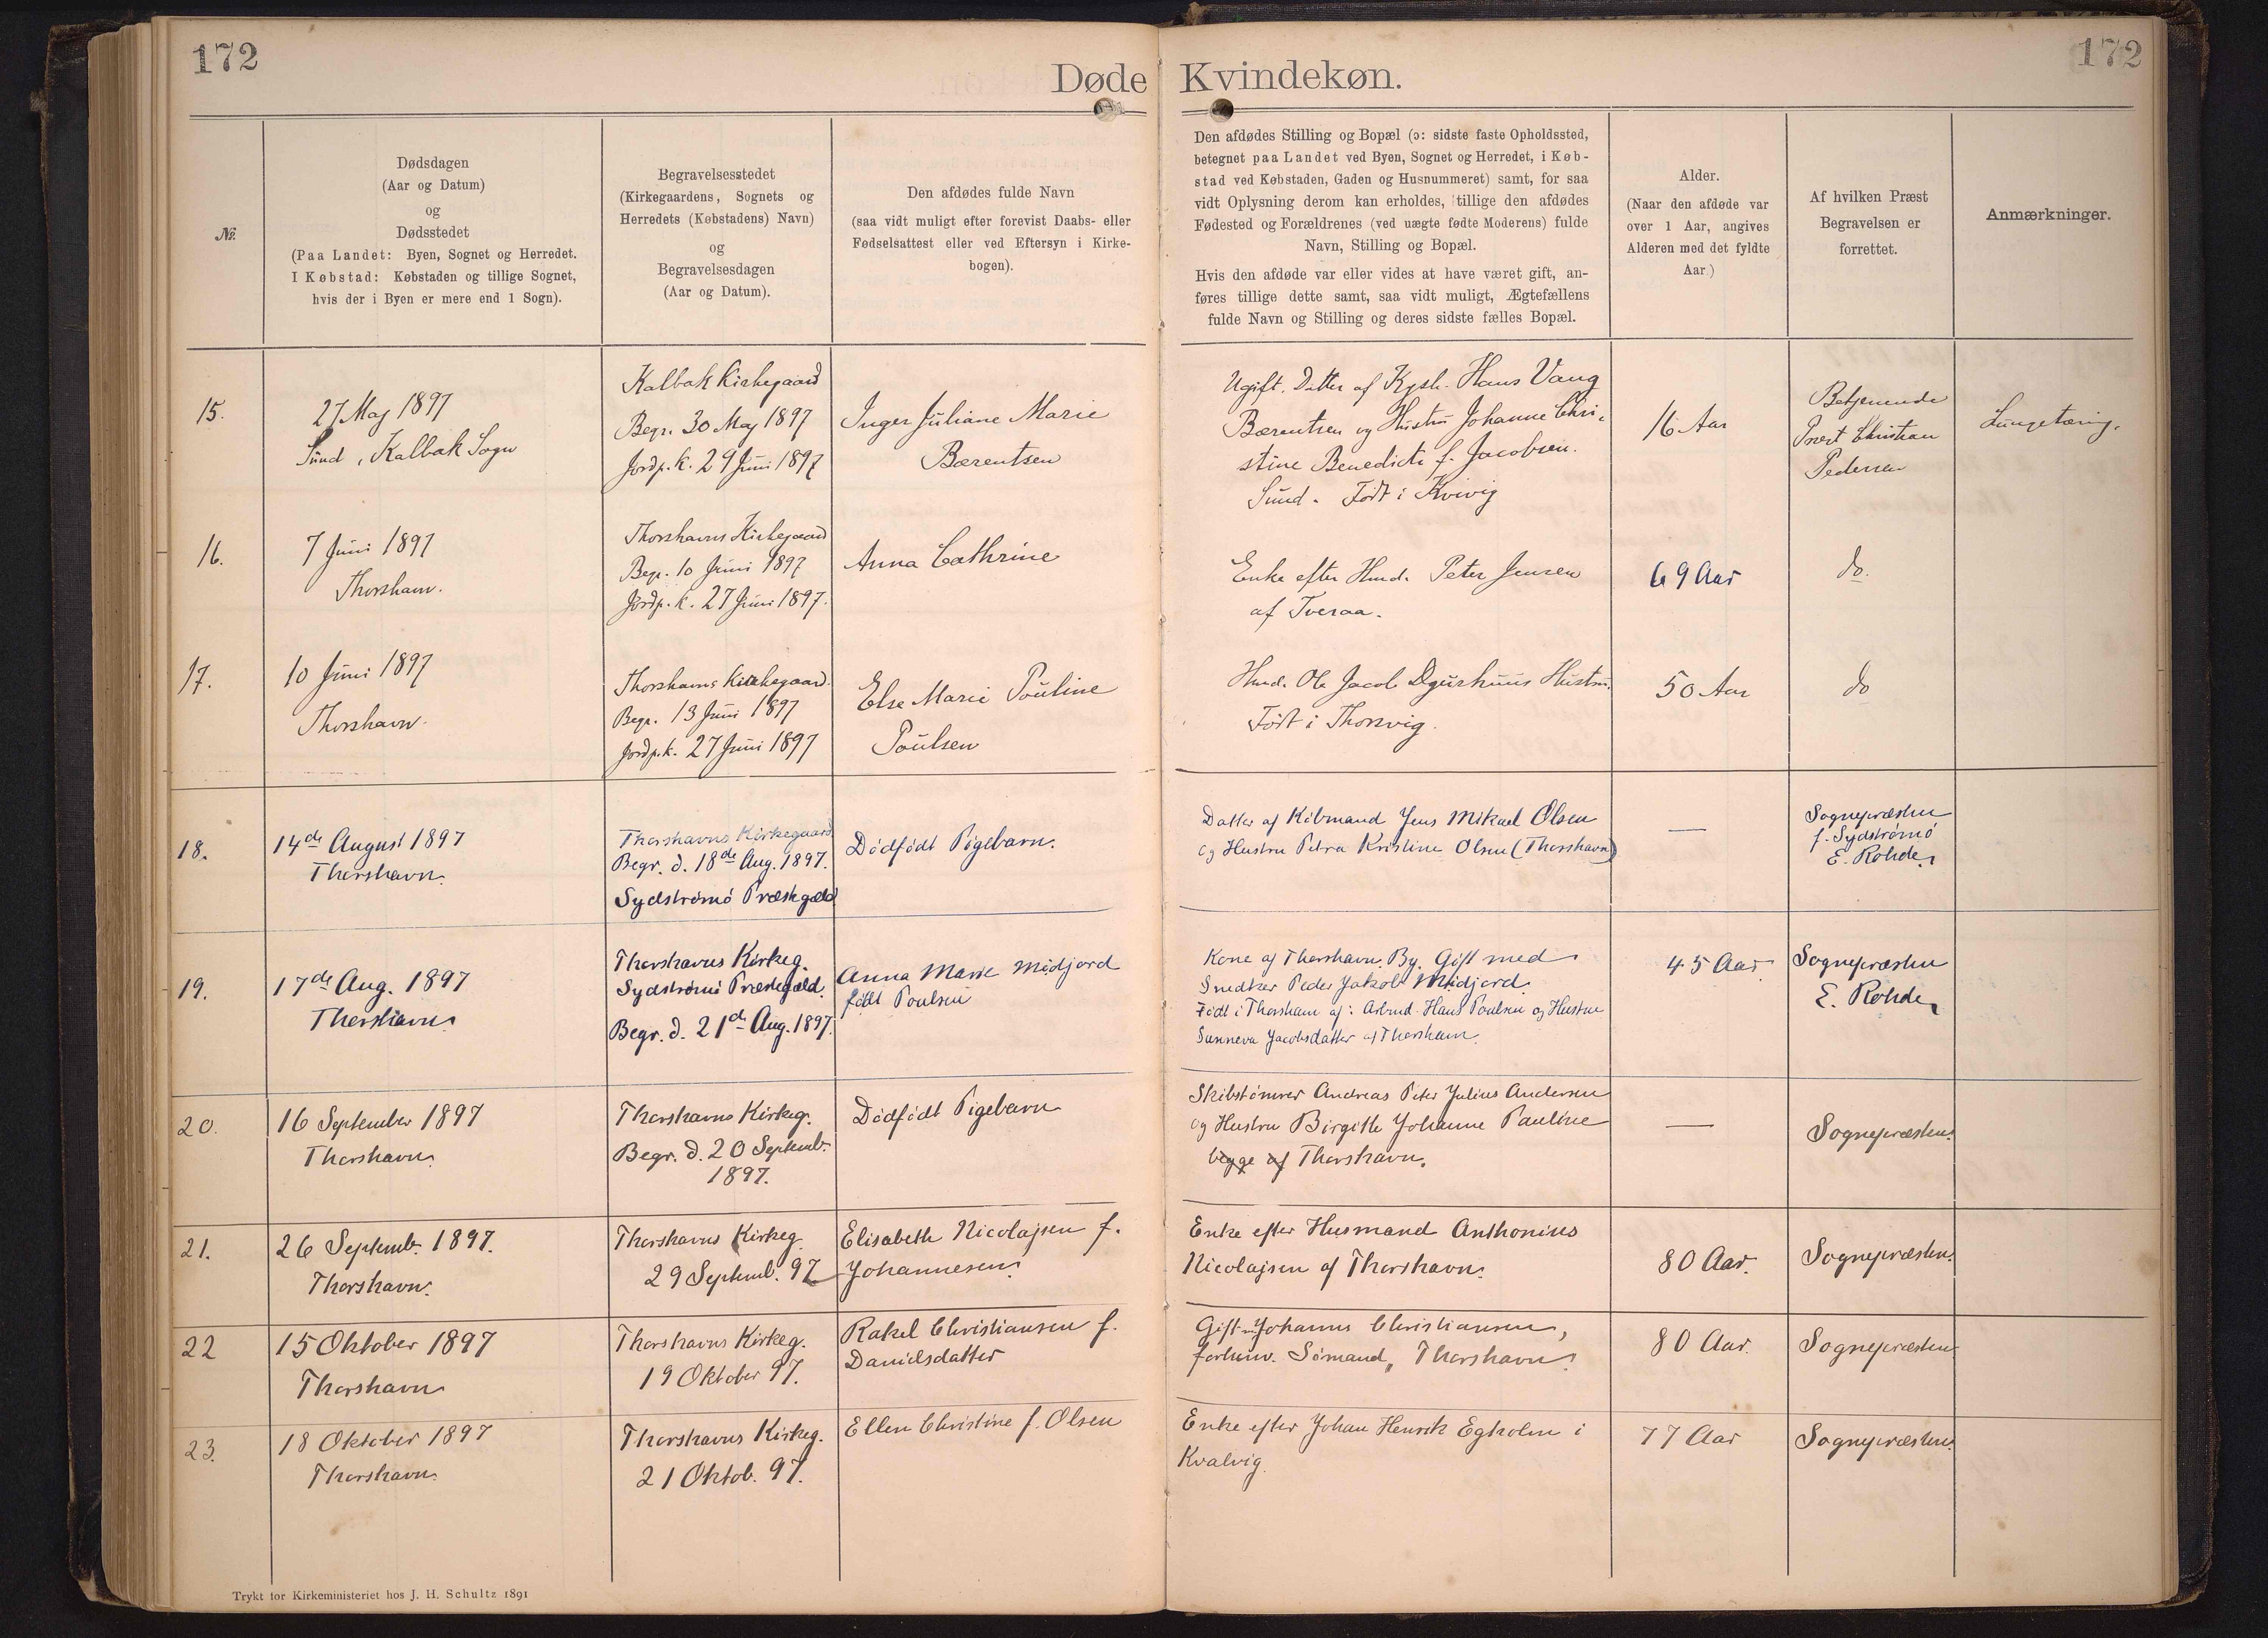 172
172
Døde Kvindekøn.
№.
Dødsdagen
(Aar og Datum)
og
Dødsstedet
(Paa Landet: Byen, Sognet og Herredet.
I Købstad: Købstaden og tillige Sognet,
hvis der i Byen er mere end 1 Sogn).
Begravelsesstedet
(Kirkegaardens, Sognets og
Herredets (Købstadens) Navn)
og
Begravelsesdagen
(Aar og Datum).
Den afdødes fulde Navn
(saa vidt muligt efter forevist Daabs- eller
Fødselsattest eller ved Eftersyn i Kirke-
bogen).
Den afdødes Stilling og Bopæl (ɔ: sidste faste Opholdssted,
betegnet paa Landet ved Byen, Sognet og Herredet, i Køb-
stad ved Købstaden, Gaden og Husnummeret) samt, for saa
vidt Oplysning derom kan erholdes, tillige den afdødes
Fødested og Forældrenes (ved uægte fødte Moderens) fulde
Navn, Stilling og Bopæl.
Hvis den afdøde var eller vides at have været gift, an-
føres tillige dette samt, saa vidt muligt, Ægtefællens
fulde Navn og Stilling og deres sidste fælles Bopæl.
Alder.
(Naar den afdøde var
over 1 Aar, angives
Alderen med det fyldte
Aar.)
Af hvilken Præst
Begravelsen er
forrettet.
Anmærkninger.
15.
27 Maj 1897
Sund, Kalbak Sogn
Kalbak Kirkegaard
Begr. 30 Maj 1897
Jordp. k. 29 Juni 1897
Inger Juliane Marie
Bærentsen
Ugift. Datter af Kgsb. Hans Vang
Bærentsen og Hustru Johanne Chri-
stine Benedicte f. Jacobsen.
Sund. Født i Kvivig
16 Aar
Betjenende
Præst Christian
Pedersen
Lungetæring.
16.
7 Juni 1897
Thorshavn.
Thorshavns Kirkegaard
Begr. 10 Juni 1897
Jordp. k. 27 Juni 1897.
Anna Cathrine
Enke efter Husd. Peter Jensen
af Tveraa.
69 Aar
do.
17.
10 Juni 1897
Thorshavn.
Thorshavns Kirkegaard.
Begr. 13 Juni 1897
Jordp. k. 27 Juni 1897
Else Marie Pouline
Poulsen
Husd. Ole Jacob Dgurhuus Hustru.
Født i Thorsvig.
50 Aar
do
18.
14de August 1897
Thorshavn.
Thorshavns Kirkegaard
Begr. d. 18de Aug. 1897.
Sydstrømø Præstegæld
Dödfödt Pigebarn.
Datter af Köbmand Jens Mikael Olsen
og Hustru Petra Kristine Olsen (Thorshavn)
—
Sognepræsten
f. Sydströmö
E. Rohde.
19.
17de Aug. 1897
Thorshavn
Thorshavns Kirkeg.
Sydströmö Præstegæld.
Begr. d. 21de Aug. 1897.
Anna Marie Midjord
födt Poulsen
Kone af Thorshavn By. Gift med
Snedker Peder Jakob Midjord.
Födt i Thorshavn af: Arbmd. Hans Poulsen og Hustru
Sunneva Jacobsdatter af Thorshavn.
45 Aar
Sognepræsten
E. Rohde
20.
16 September 1897
Thorshavn.
Thorshavns Kirkeg.
Begr. d. 20 Septemb.
1897.
Dödfödt Pigebarn
Skibstömrer Andreas Peter Julius Andersen
og Hustru Birgitte Johanne Pauline
begge af Thorshavn.
—
Sognepræsten.
21.
26 Septemb. 1897.
Thorshavn.
Thorshavns Kirkeg.
29 Septemb. 97
Elisabeth Nicolajsen f.
Johannesen.
Enke efter Husmand Anthonius
Nicolajsen af Thorshavn.
80 Aar.
Sognepræsten.
22
15 Oktober 1897
Thorshavn
Thorshavns Kirkeg.
19 Oktober 97.
Rakel Christiansen f.
Danielsdatter
Gift m. Johannes Christiansen,
forhenv. Sömand, Thorshavn.
80 Aar.
Sognepræsten
23.
18 Oktober 1897
Thorshavn.
Thorshavns Kirkeg.
21 Oktob. 97.
Ellen Christine f. Olsen
Enke efter Johan Henrik Egholm i
Kvalvig.
77 Aar
Sognepræsten.
Trykt for Kirkeministeriet hos J. H. Schultz 1891